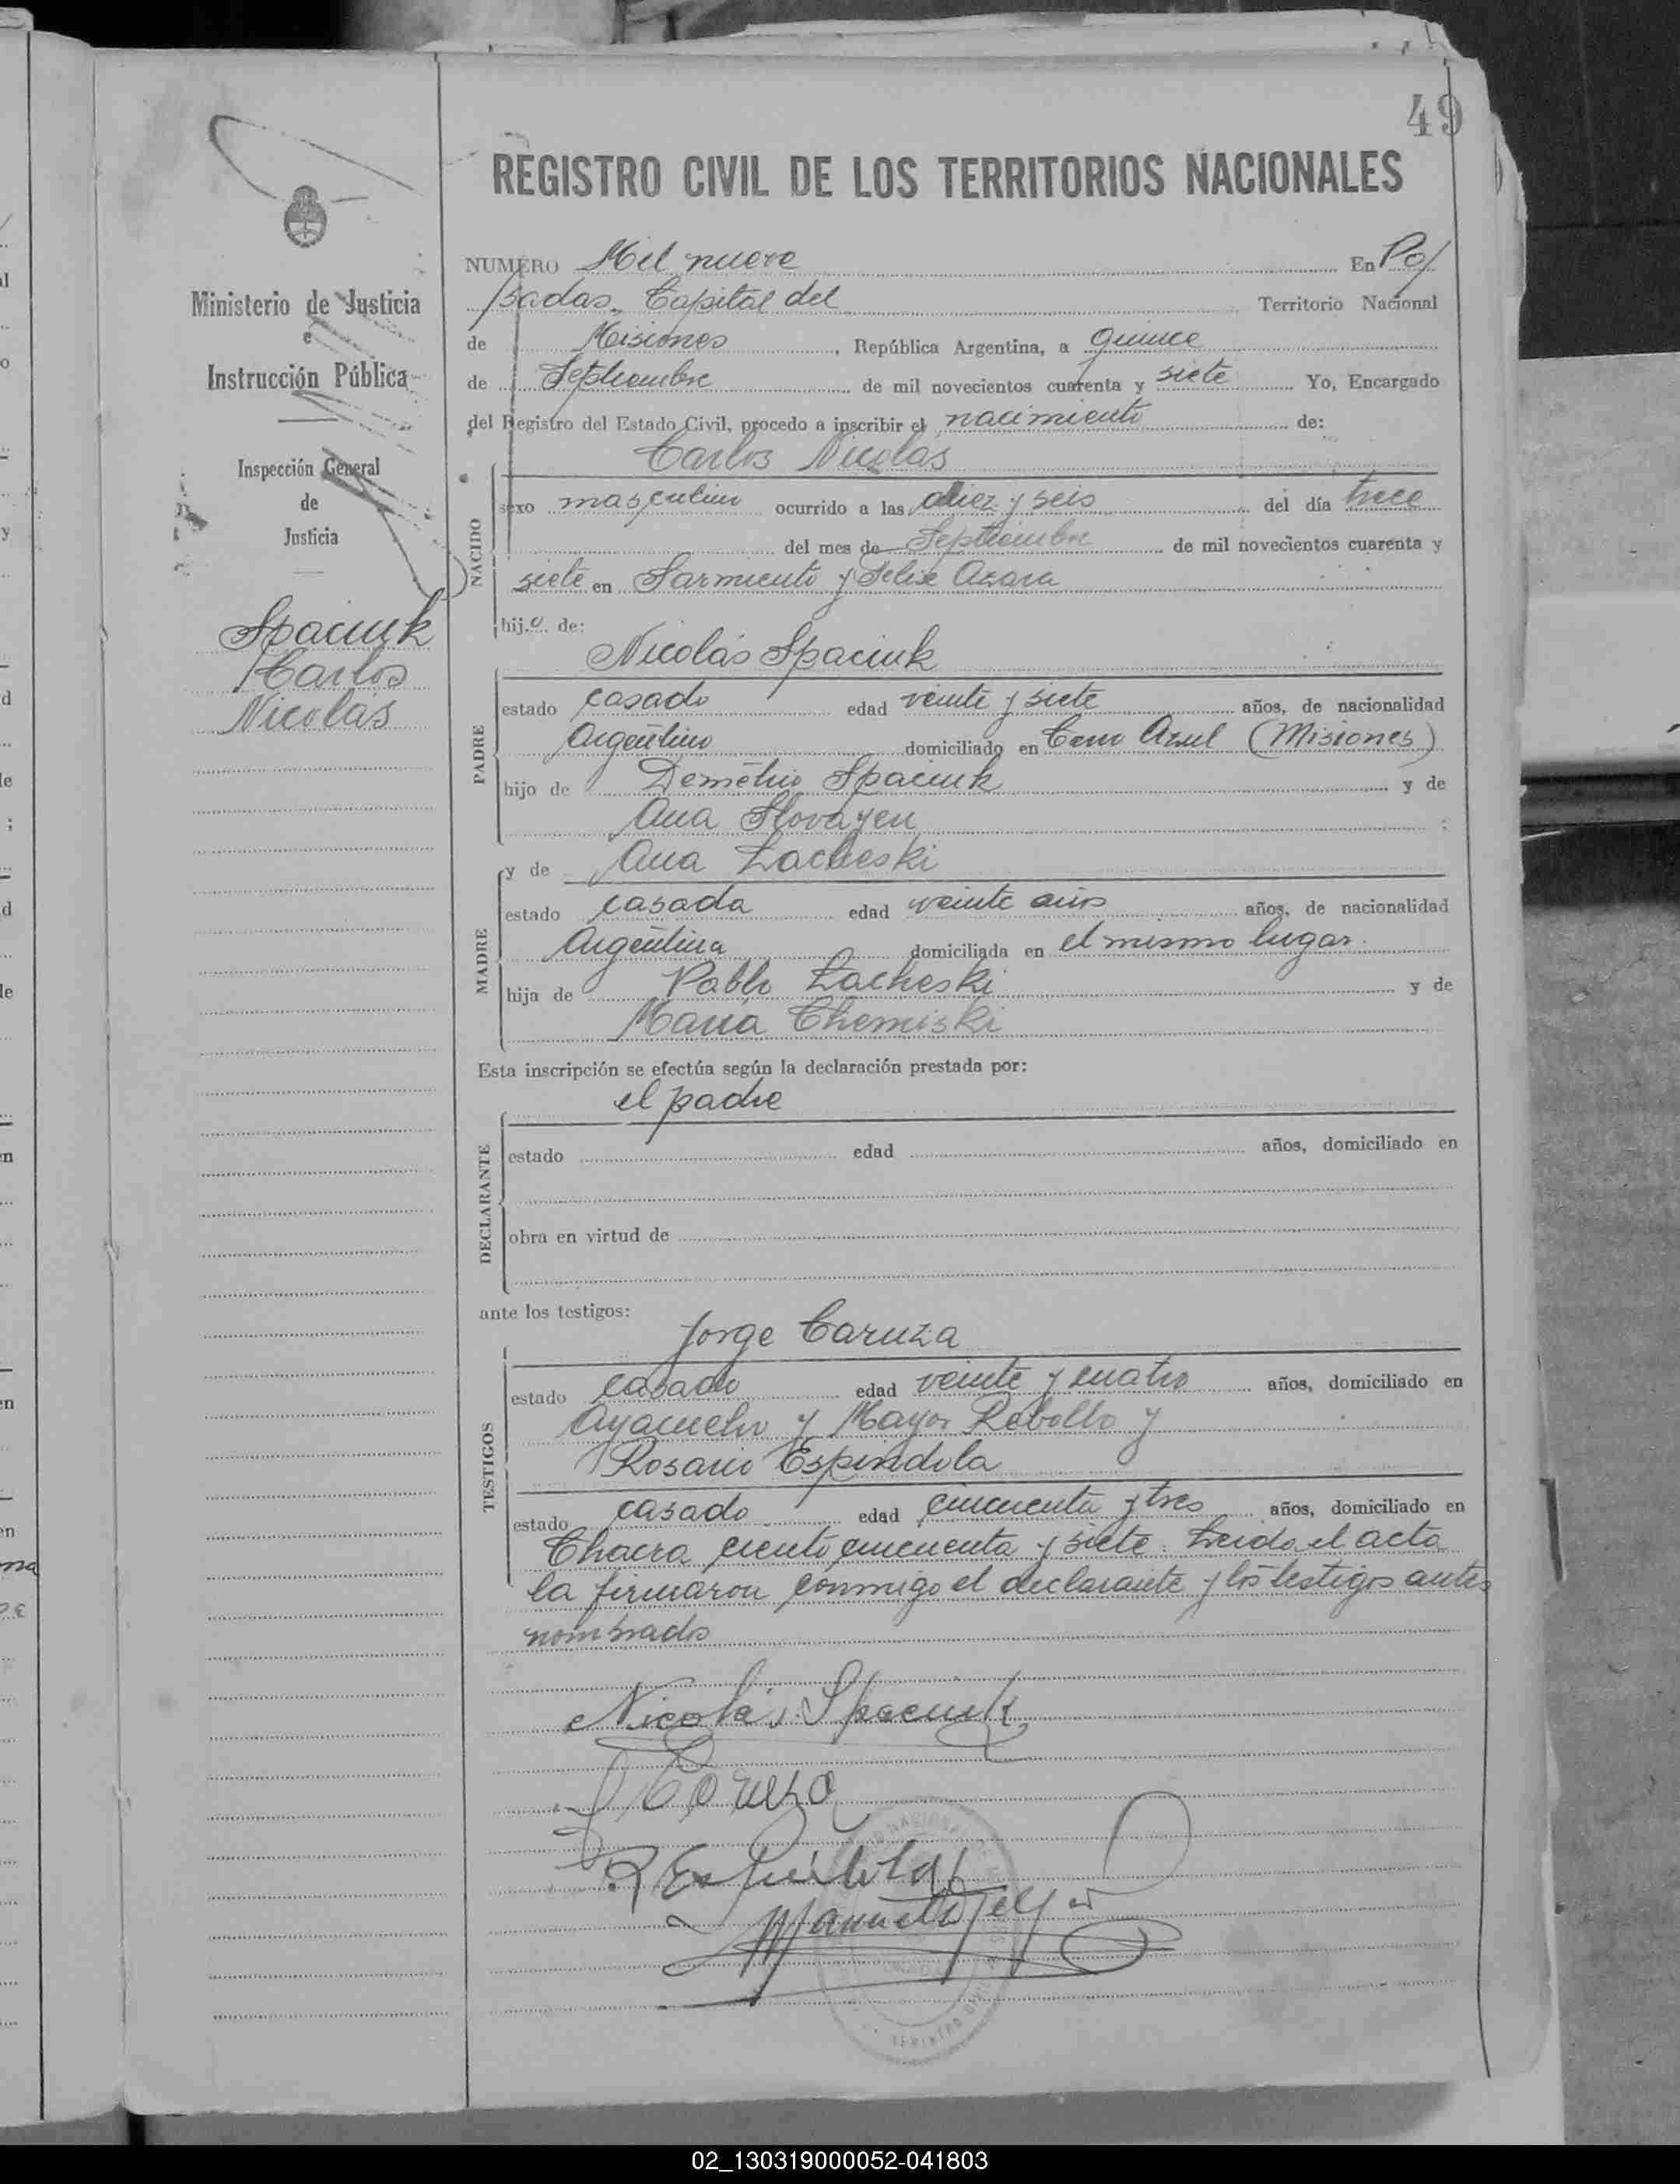 49
REGISTRO CIVIL DE LOS TERRITORIOS NACIONALES
Ministerio de Justicia
e
Instrucción Pública
Inspección General
de
Justicia
Spaciuk
Carlos
Nicolás
NUMERO Mil nueve En Po/
/sadas, Capital del Territorio Nacional
de Misiones, República Argentina, a quince
de Septiembre de mil novecientos cuarenta y siete Yo, Encargado
del Registro del Estado Civil, procedo a inscribir el nacimiento de:
Carlos Nicolás
NACIDO
sexo masculino ocurrido a las diez y seis del día trece
del mes de Septiembre de mil novecientos cuarenta y
siete en Sarmiento y Felix Azara
hijo de:
Nicolás Spaciuk
PADRE
estado casado edad veinte y siete años, de nacionalidad
Argentino domiciliado en Cerro Azul (Misiones)
hijo de Demétrio Spaciuk y de
Ana Slovayen;
y de Ana Lacheski
MADRE
estado casada edad veinte años años, de nacionalidad
Argentina domiciliada en el mismo lugar.
hija de Pablo Lacheski y de
María Chemiski
Esta inscripción se efectúa según la declaración prestada por:
el padre
DECLARANTE
estado edad años, domiciliado en
obra en virtud de
ante los testigos:
Jorge Caruza
TESTIGOS
estado casado edad veinte y cuatro años, domiciliado en
Ayacucho y Mayor Rebollo y
Rosario Espindola
estado casado edad cincuenta y tres años, domiciliado en
Chacra ciento cincuenta y siete. Leida el acta
la firmaron conmigo el declarante y los testigos antes
nombrados
Nicolás Spaciuk
J Caruzo
R Espindola
02_130319000052-041803